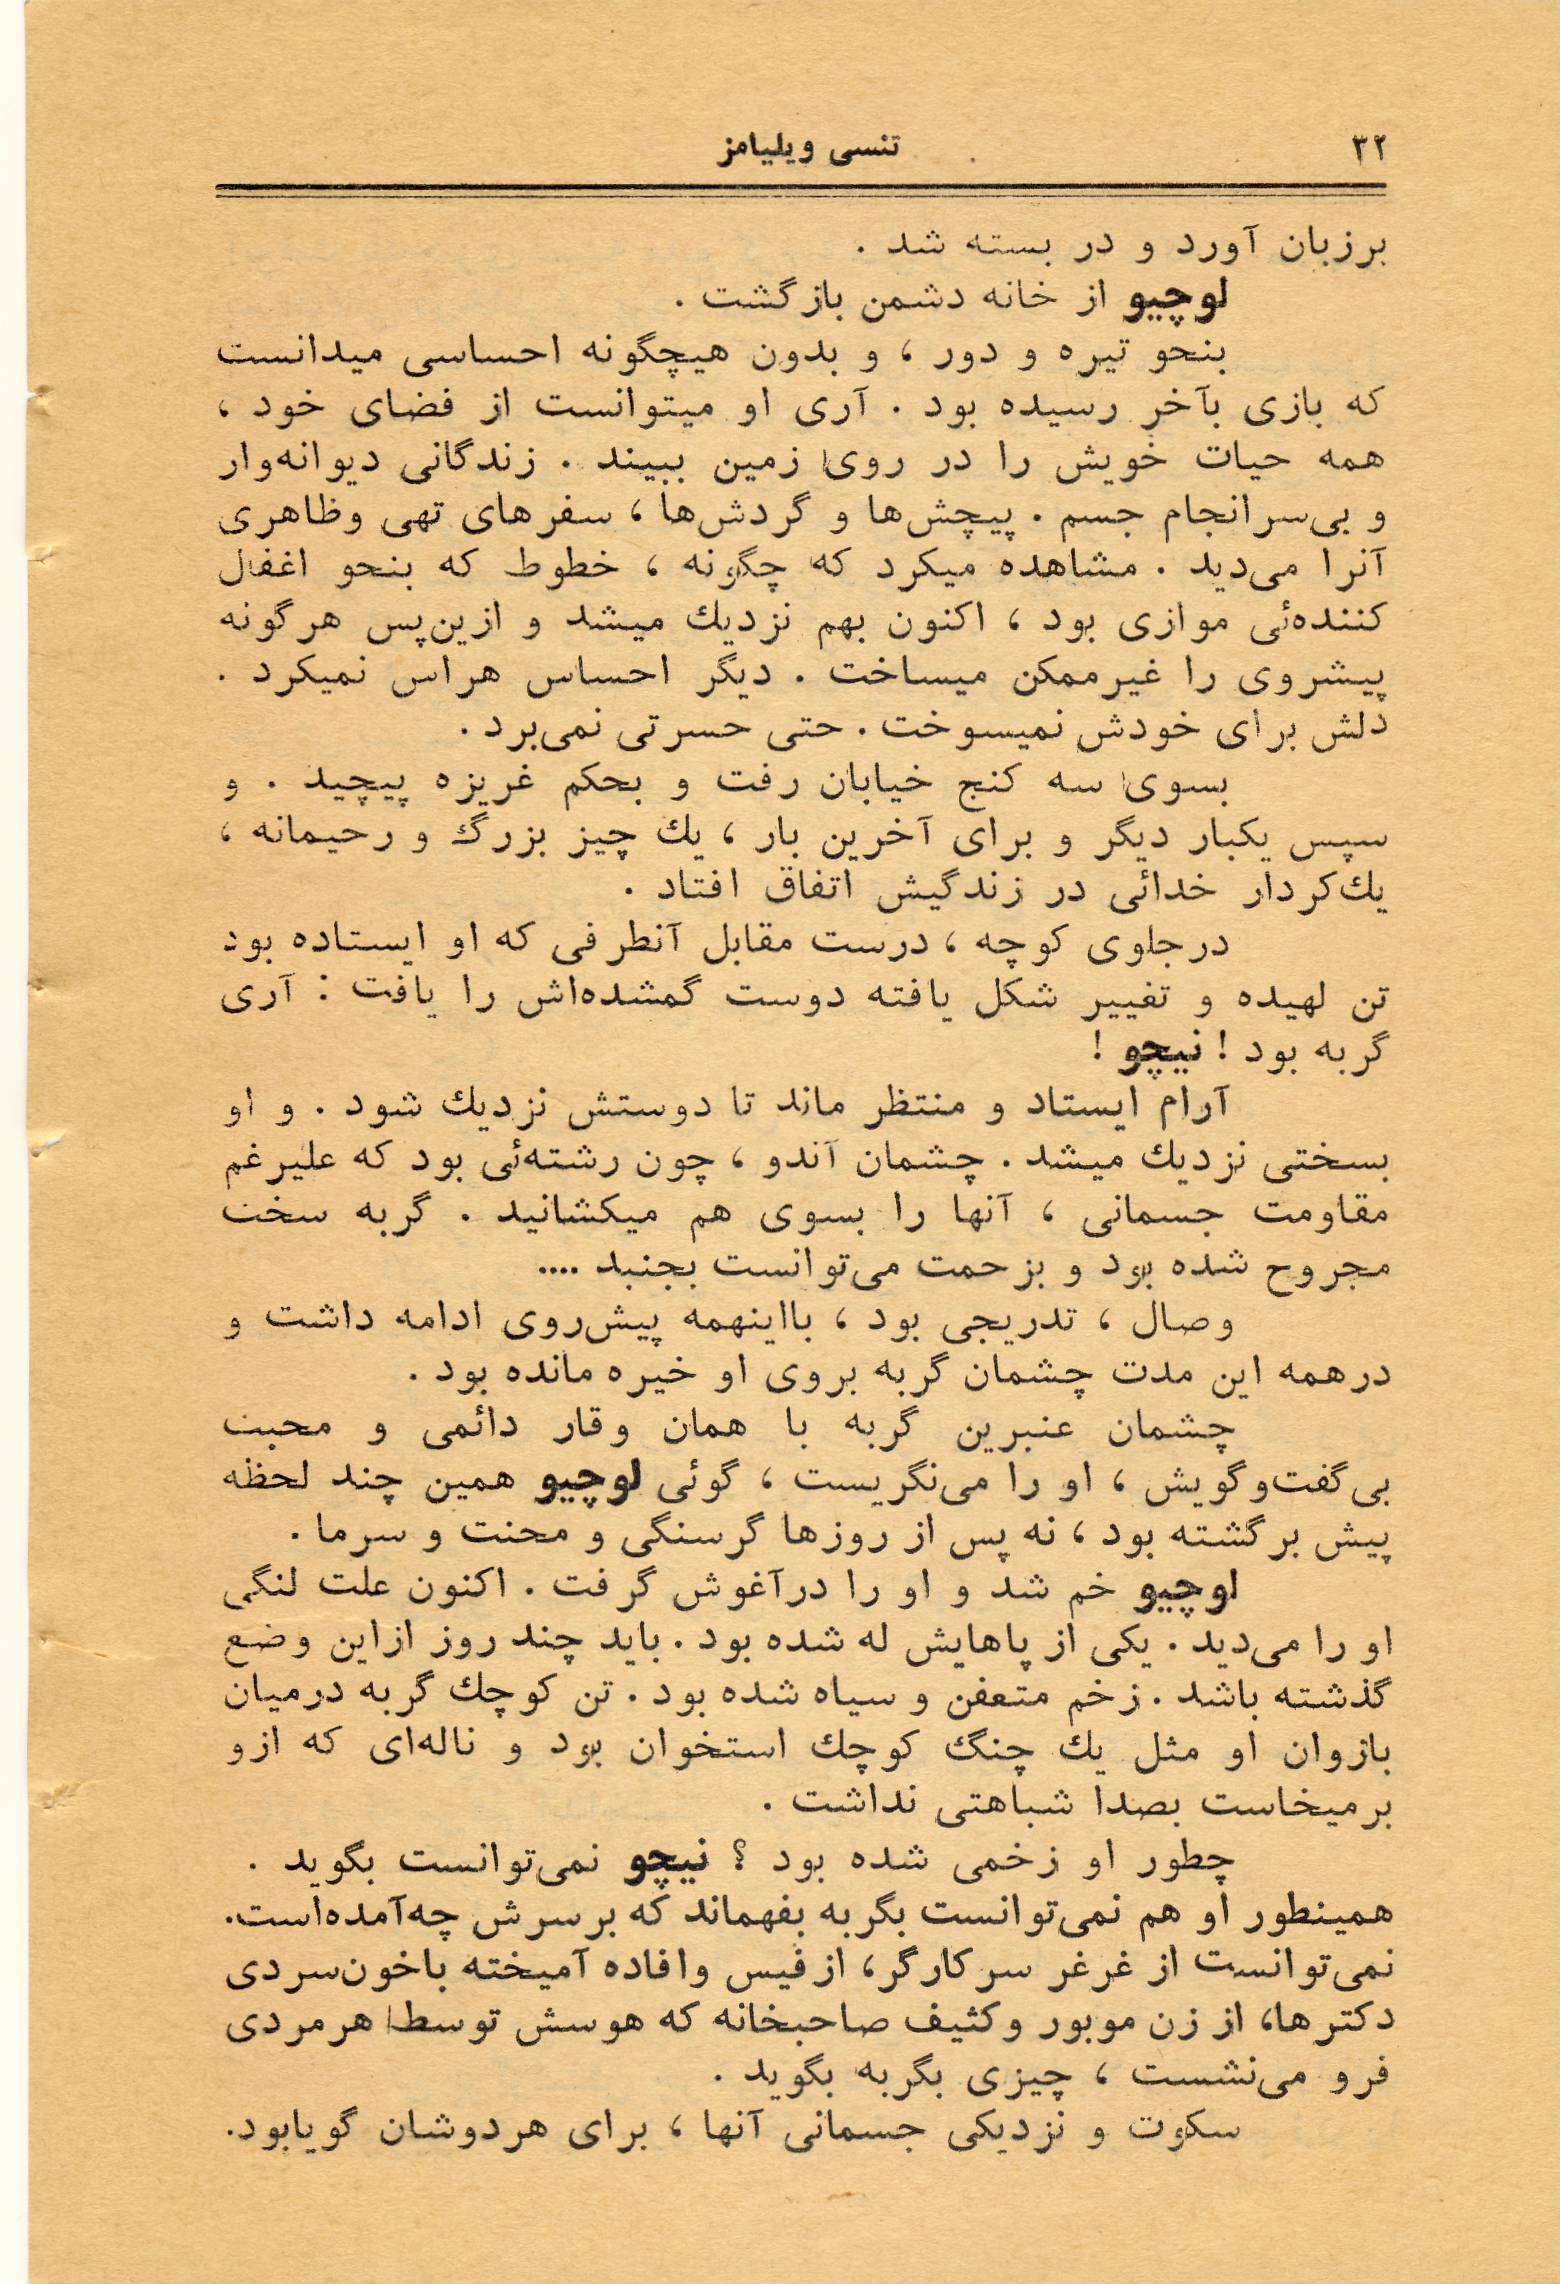 ۳۲
تنسی ویلیامز
برزبان آورد و در بسته شد .
لوچیو از خانه دشمن بازگشت .
بنحو تیره و دور ، و بدون هیچگونه احساسی میدانست
که بازی بآخر رسیده بود . آری او میتوانست از فضای خود ،
همه حیات خویش را در روی زمین ببیند . زندگانی دیوانه‌وار
و بی‌سرانجام جسم . پیچش‌ها و گردش‌ها ، سفرهای تهی وظاهری
آنرا می‌دید . مشاهده میکرد که چگونه ، خطوط که بنحو اغفال
کننده‌ئی موازی بود ، اکنون بهم نزدیك میشد و ازین‌پس هرگونه
پیشروی را غیرممکن میساخت . دیگر احساس هراس نمیکرد .
دلش برای خودش نمیسوخت . حتی حسرتی نمی‌برد .
بسوی سه کنج خیابان رفت و بحکم غریزه پیچید . و
سپس یکبار دیگر و برای آخرین بار ، یك چیز بزرگ و رحیمانه ،
یك‌کردار خدائی در زندگیش اتفاق افتاد .
درجلوی کوچه ، درست مقابل آنطرفی که او ایستاده بود
تن لهیده و تغییر شکل یافته دوست گمشده‌اش را یافت : آری
گربه بود ! نیچو !
آرام ایستاد و منتظر ماند تا دوستش نزدیك شود . و او
بسختی نزدیك میشد . چشمان آندو ، چون رشته‌ئی بود که علیرغم
مقاومت جسمانی ، آنها را بسوی هم میکشانید . گربه سخت
مجروح شده بود و بزحمت می‌توانست بجنبد ....
وصال ، تدریجی بود ، بااینهمه پیش‌روی ادامه داشت و
درهمه این مدت چشمان گربه بروی او خیره مانده بود .
چشمان عنبرین گربه با همان وقار دائمی و محبت
بی‌گفت‌وگویش ، او را می‌نگریست ، گوئی لوچیو همین چند لحظه
پیش برگشته بود ، نه پس از روزها گرسنگی و محنت و سرما .
لوچیو خم شد و او را درآغوش گرفت . اکنون علت لنگی
او را می‌دید . یکی از پاهایش له شده بود . باید چند روز ازاین وضع
گذشته باشد . زخم متعفن و سیاه شده بود . تن کوچك گربه درمیان
بازوان او مثل یك چنگ کوچك استخوان بود و ناله‌ای که ازو
برمیخاست بصدا شباهتی نداشت .
چطور او زخمی شده بود ؟ نیچو نمی‌توانست بگوید .
همینطور او هم نمی‌توانست بگربه بفهماند که برسرش چه‌آمده‌است.
نمی‌توانست از غرغر سرکارگر، از فیس وافاده آمیخته باخون‌سردی
دکترها، از زن موبور وکثیف صاحبخانه که هوسش توسط هرمردی
فرو می‌نشست ، چیزی بگربه بگوید .
سکوت و نزدیکی جسمانی آنها ، برای هردوشان گویابود.